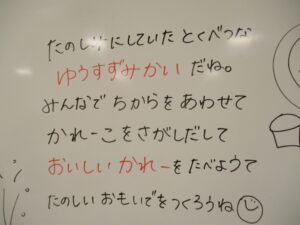 たのしみにしていた とくべつな
ゆうすずみかい だね。
みんなで ちからを あわせて
かれーこをさがしだして
おいしい かれーをたべようて
たのしい おもいでをつくろうね